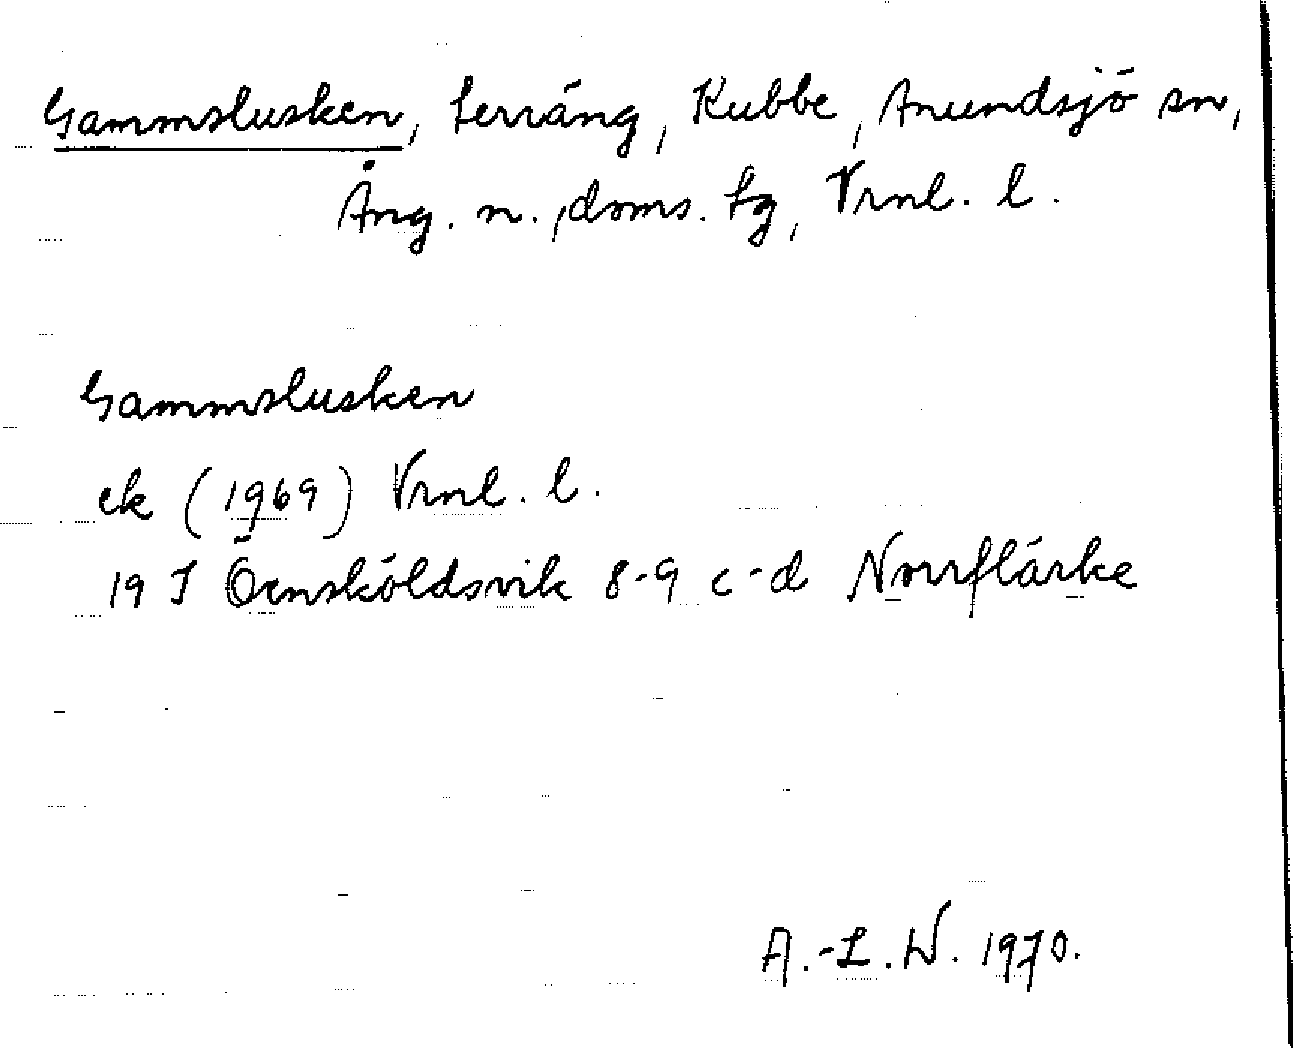 Gammslusken, terräng, Kubbe, Anundsjö sn,
Ång. n., doms. tg, Vrnl. l.
Gammslusken
ek (1969) Vrnl. l.
19 I Örnsköldsvik 8-9 c-d Norrflärke
A.-L. W. 1970.